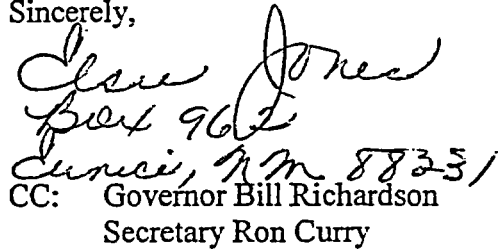 Sincerely,
Elsie Jones
Box 962
Eunice, NM 88231
CC: Governor Bill Richardson
Secretary Ron Curry